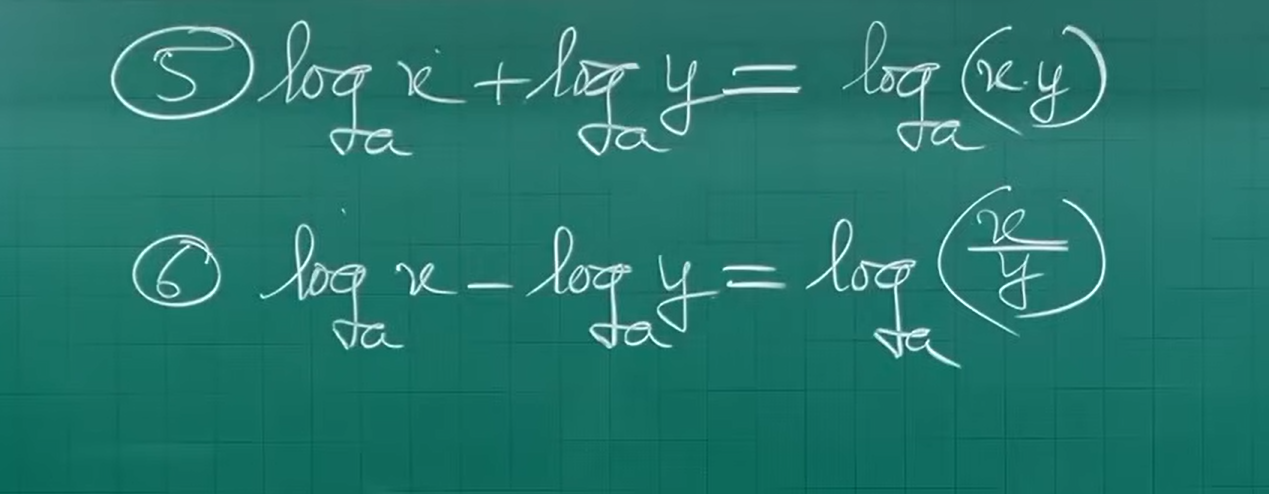 ⑤ logₐ x + logₐ y = logₐ (x·y)
⑥ logₐ x − logₐ y = logₐ (x/y)